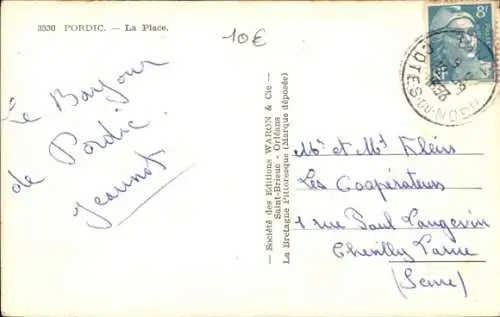 3530 PORDIC. — La Place.
10€
8F
COTES-DU-NORD
Le Bonjour
de Pordic.
Jeannot
— Société des Editions WARON & Cie —
Saint-Brieuc - Orléans
La Bretagne Pittoresque (Marque déposée)
Mr et Md Kleins
Les Coopérateurs
1 rue Paul Langevin
Chevilly Larue
(Seine)